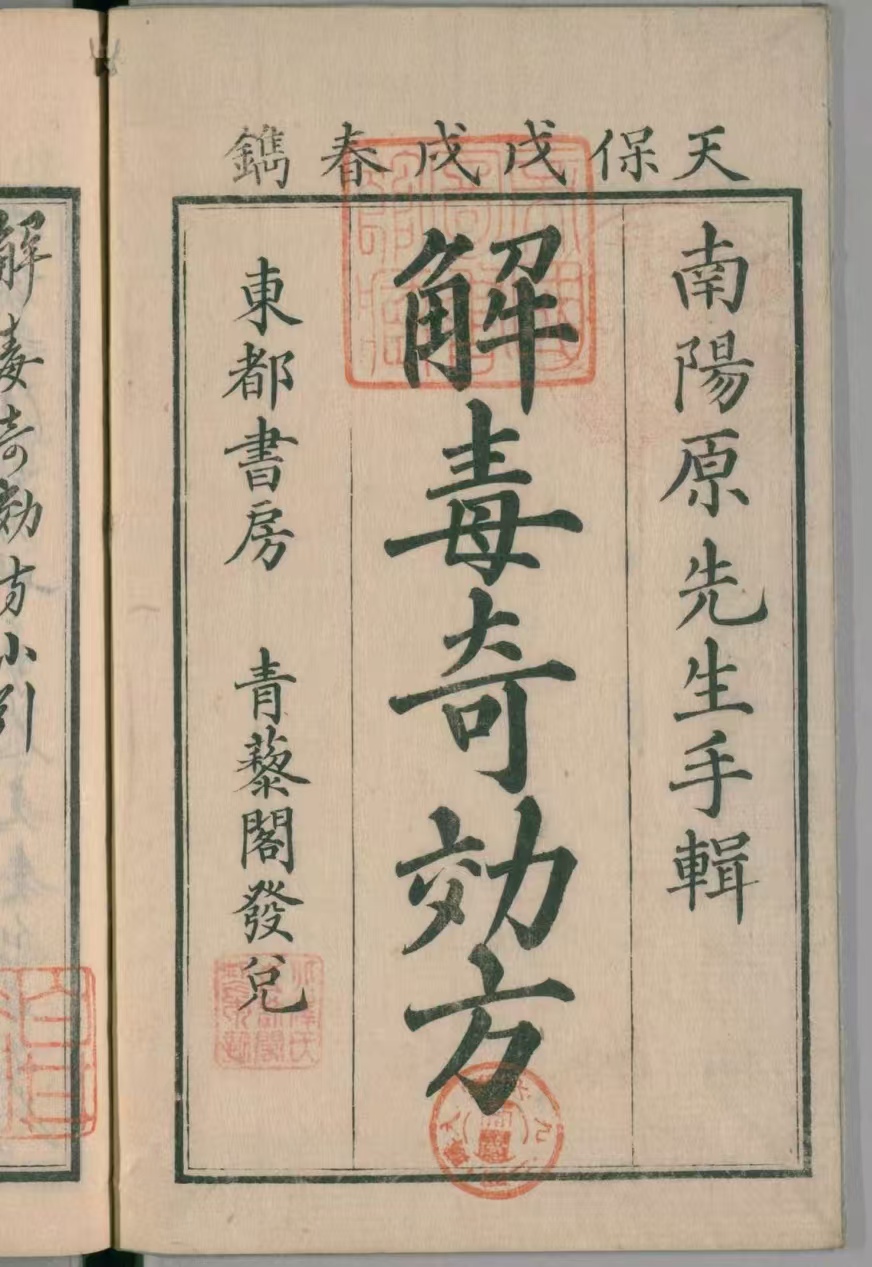 天保戊戌春鐫
南陽原先生手輯
解毒奇効方
東都書房 青藜閣發兌
解毒奇効方小引